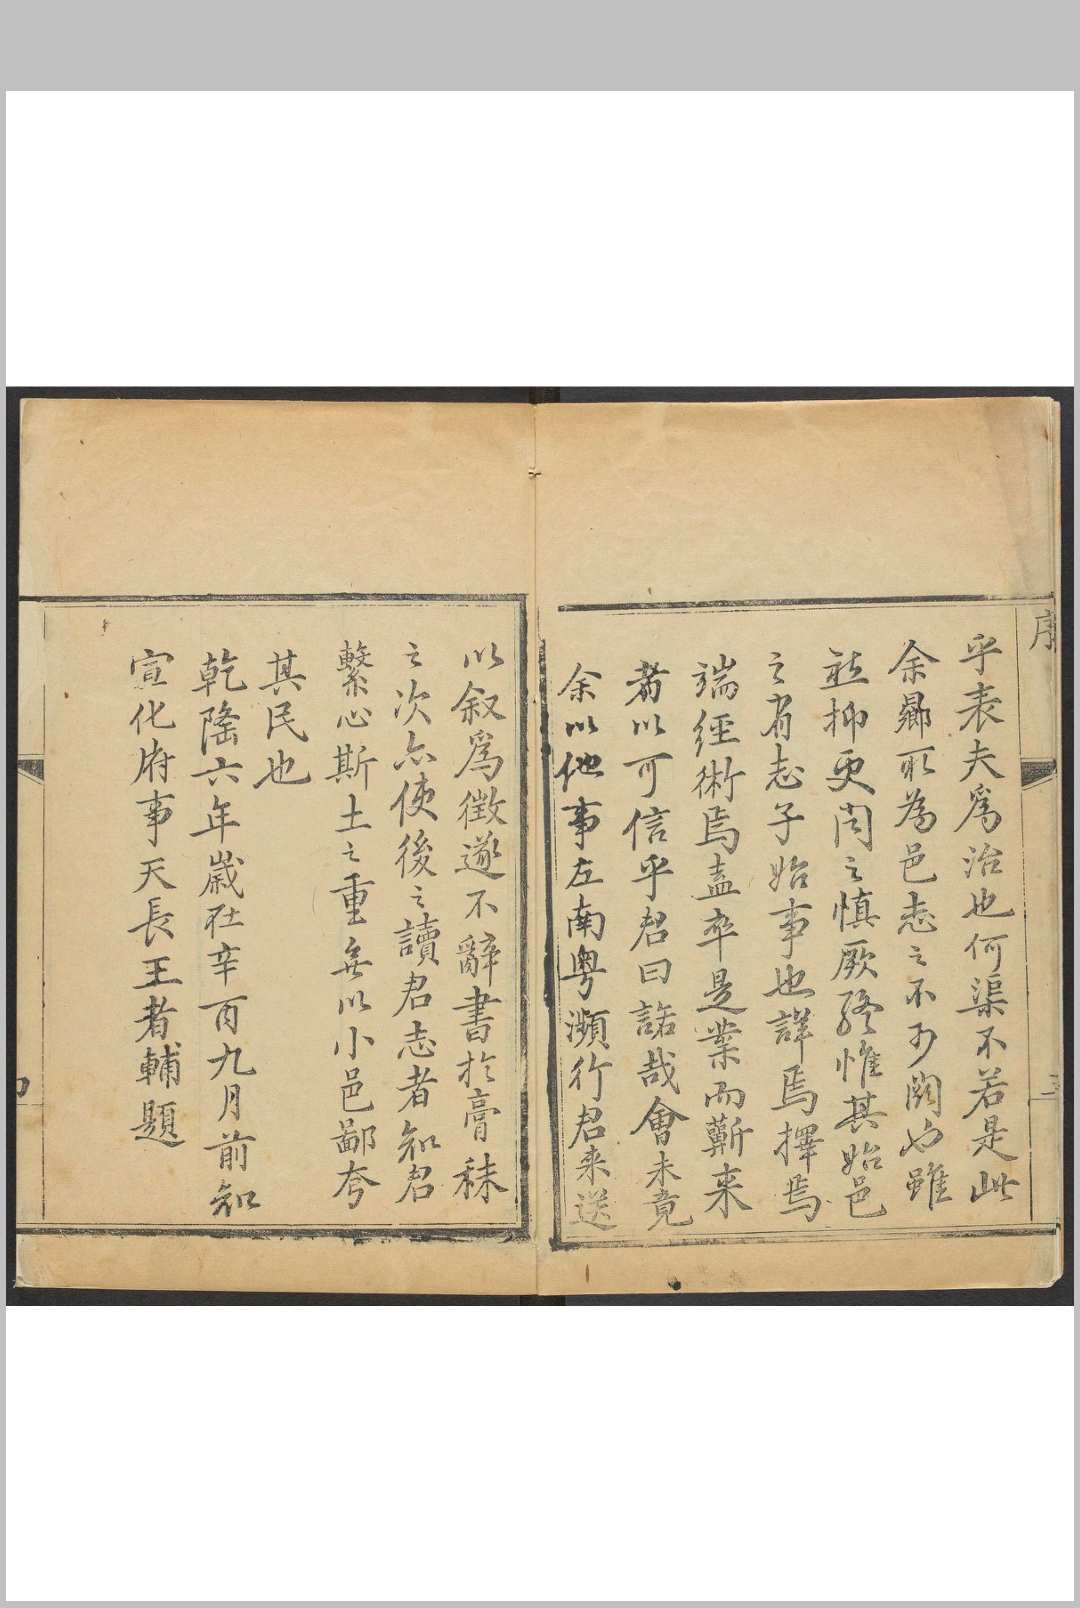 序
乎表夫爲治也何渠不若是此
余曏所為邑志之不可闕也雖
然抑更聞之慎厥終惟其始邑
之有志子始事也詳焉擇焉
端經術焉盍卒是業而蘄来
者以可信乎君曰諾哉會未竟
余以他事左南粤瀕行君来送
以叙爲徵遂不辭書於膏秣
之次亦使後之讀君志者知君
繫心斯土之重無以小邑鄙夸
其民也
乾隆六年歲在辛酉九月前知
宣化府事天長王者輔題